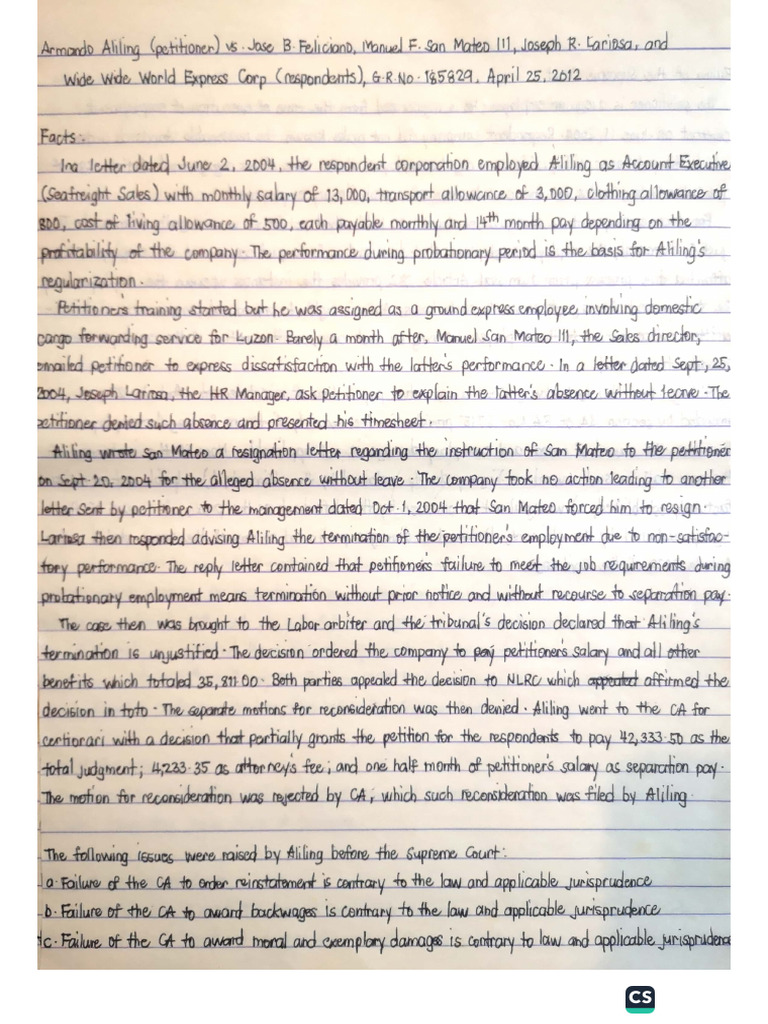 Armando Aliling (petitioner) vs. Jose B. Feliciano, Manuel F. San Mateo III, Joseph R. Lariosa, and
Wide Wide World Express Corp (respondents), G.R. No. 185829, April 25, 2012
Facts:
In a letter dated June 2, 2004, the respondent corporation employed Aliling as Account Executive
(Seafreight Sales) with monthly salary of 13,000, transport allowance of 3,000, clothing allowance of
800, cost of living allowance of 500, each payable monthly and 14th month pay depending on the
profitability of the company. The performance during probationary period is the basis for Aliling's
regularization.
Petitioner's training started but he was assigned as a ground express employee involving domestic
cargo forwarding service for Luzon. Barely a month after, Manuel San Mateo III, the Sales director,
emailed petitioner to express dissatisfaction with the latter's performance. In a letter dated Sept. 25,
2004, Joseph Lariosa, the HR Manager, ask petitioner to explain the latter's absence without leave. The
petitioner denied such absence and presented his timesheet.
Aliling wrote San Mateo a resignation letter regarding the instruction of San Mateo to the petitioner
on Sept. 20, 2004 for the alleged absence without leave. The company took no action leading to another
letter sent by petitioner to the management dated Oct. 1, 2004 that San Mateo forced him to resign.
Lariosa then responded advising Aliling the termination of the petitioner's employment due to non-satisfac-
tory performance. The reply letter contained that petitioner's failure to meet the job requirements during
probationary employment means termination without prior notice and without recourse to separation pay.
The case then was brought to the Labor arbiter and the tribunal's decision declared that Aliling's
termination is unjustified. The decision ordered the company to pay petitioner's salary and all other
benefits which totaled 35,811.00. Both parties appealed the decision to NLRC which appeated affirmed the
decision in toto. The separate motions for reconsideration was then denied. Aliling went to the CA for
certiorari with a decision that partially grants the petition for the respondents to pay 42,333.50 as the
total judgment; 4,233.35 as attorney's fee; and one half month of petitioner's salary as separation pay.
The motion for reconsideration was rejected by CA, which such reconsideration was filed by Aliling.
The following issues were raised by Aliling before the Supreme Court:
a. Failure of the CA to order reinstatement is contrary to the law and applicable jurisprudence
b. Failure of the CA to award backwages is contrary to the law and applicable jurisprudence
c. Failure of the CA to award moral and exemplary damages is contrary to law and applicable jurisprudence
CS